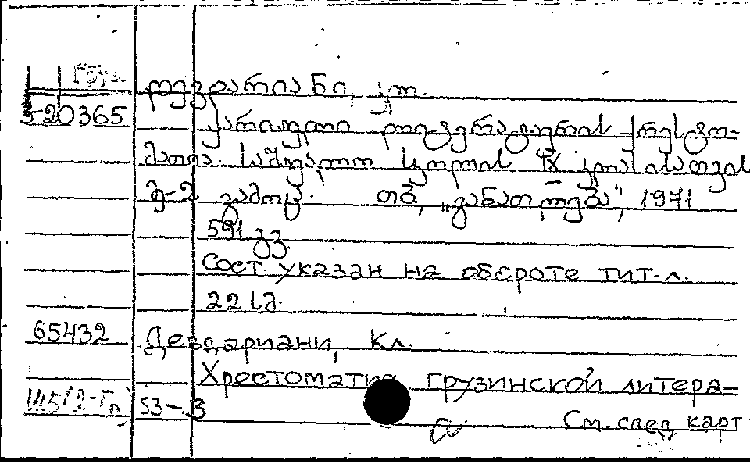 დევდარიანი, კლ.
5-20365
ქართული ლიტერატურის ქრესტო-
მათია საშუალო სკოლის IX კლასისათვის
მე-2 გამოც. თბ., „განათლება", 1971
591 გვ.
Сост указан на обороте тит.л.
2213.
65432 Девдариани, Кл.
Хрестоматия грузинской литера-
53-3
См. след карт